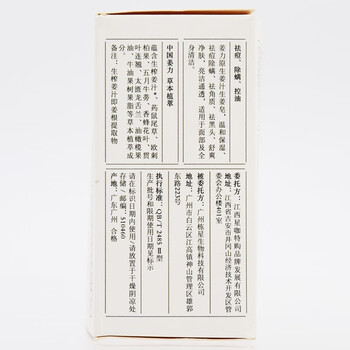 祛痘、除螨、控油
姜力原生姜汁生姜皂，温和保湿、
祛痘除螨、祛角质、祛黑头、舒爽
净肤、亮洁通透，适用于面部及全
身清洁。
中国姜力 草本植萃
蕴含生榨姜汁*、药鼠尾草、欧刺
柏果、五月牛蒡、香蜂花叶、贯
叶连翘、太匮龙舌兰、油橄榄果
油、牛油果树果脂等草本植萃成
分。
备注：生榨姜汁即姜根提取物
委托方：江西巨咖特购品牌发展有限公司
地址：江西省吉安市井冈山经济技术开发区管
委会办公楼401室
被委托方：广州栋星生物科技有限公司
地址：广州市白云区江高镇神山管理区雄郭
东路223号
执行标准：QB/T 2485 II型
生产批号和限期使用日期见标示
请在标识日期内使用/请放置于干燥阴凉处
存储/邮编：510460
产地：广东广州 合格